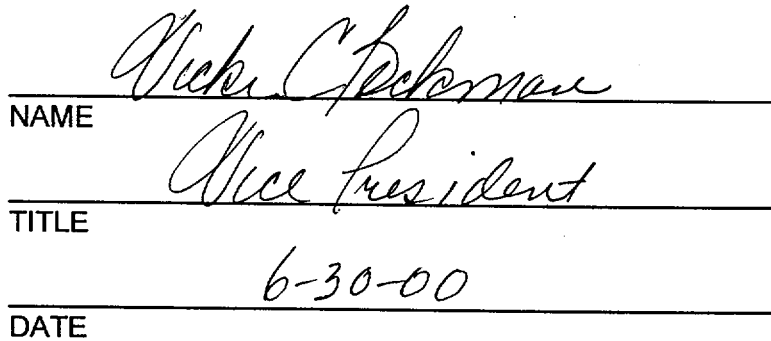 Vicki C Peckman
NAME
Vice President
TITLE
6-30-00
DATE